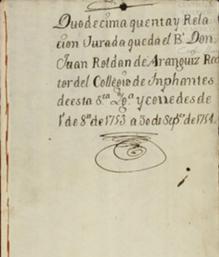 Duodecima quenta y Rela
cion Jurada que da el Br. Don
Juan Roldan de Aranguiz Rec
tor del Collegio de Inphantes
de esta Sta. Yga. y corre desde
1º de 8re. de 1753 a 30 de Sepre. de 1754.